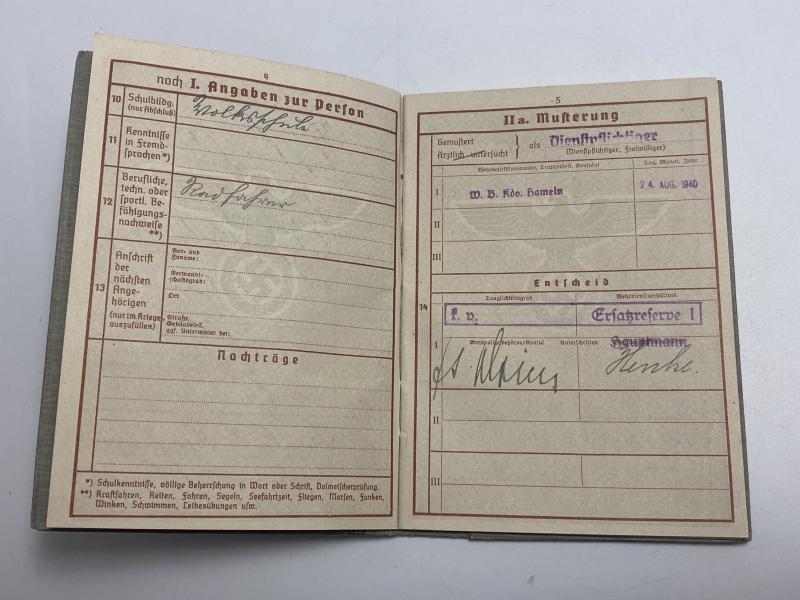 4
noch I. Angaben zur Person
10 Schulbildg. (nur Abschluß)
Volksschule
11 Kenntnisse in Fremdsprachen*)
12 Berufliche, techn. oder sportl. Befähigungsnachweise **)
Radfahrer
13 Anschrift der nächsten Angehörigen (nur im Kriege auszufüllen)
Vor- und Zuname:
Verwandtschaftsgrad:
Ort
Straße, Gebäudeteil, ggf. Untermieter bei:
Nachträge
*) Schulkenntnisse, völlige Beherrschung in Wort oder Schrift, Dolmetscherprüfung.
**) Kraftfahren, Reiten, Fahren, Segeln, Seefahrtzeit, Fliegen, Morsen, Funken,
Winken, Schwimmen, Leibesübungen usw.
5
IIa. Musterung
Gemustert
Ärztlich untersucht } als Dienstpflichtiger
(Dienstpflichtiger, Freiwilliger)
Wehrbezirkskommando, Truppenteil, Konsulat
Tag, Monat, Jahr
I W. B. Kdo. Hameln 24. AUG. 1940
II
III
Entscheid
14 Tauglichkeitsgrad Wehrdienstverhältnis
k. v. Ersatzreserve I
I Kreispolizeibehörde/Konsul Unterschriften Hauptmann
Henke.
II
III